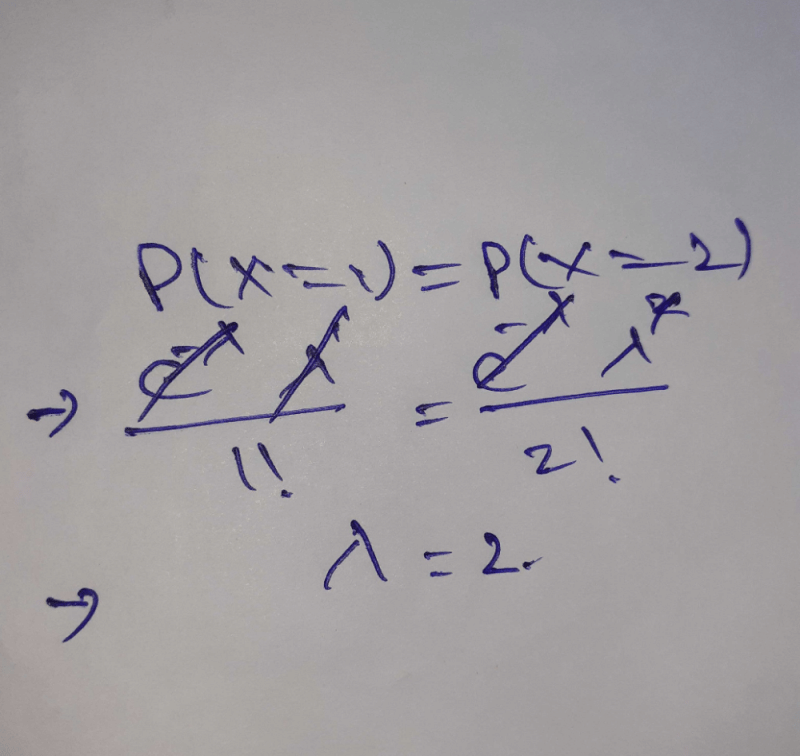 P(X=1) = P(X=2)
→ e^-λ λ / 1! = e^-λ λ^2 / 2!
→ λ = 2.